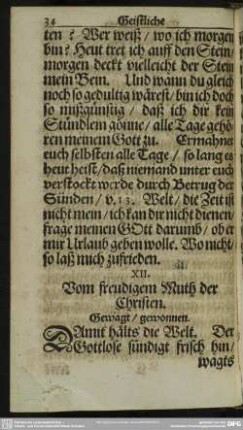 34 Geistliche
ten? Wer weiß / wo ich morgen
bin? Heut tret ich auff den Stein /
morgen deckt vielleicht der Stein
mein Bein. Und wann du gleich
noch so gedultig wärest / bin ich doch
so mißgünstig / daß ich dir kein
Stündlein gönne / alle Tage gehö-
ren meinem Gott zu. Ermahnet
euch selbsten alle Tage / so lang es
heut heist / daß niemand unter euch
verstockt werde durch Betrug der
Sünden / v. 13. Welt / die Zeit ist
nicht mein / ich kan dir nicht dienen /
frage meinen GOtt darumb / ob er
mir Urlaub geben wolle. Wo nicht /
so laß mich zufrieden.
XII.
Vom freudigem Muth der
Christen.
Gewagt / gewonnen.
DAmit hälts die Welt. Der
Gottlose sündigt frisch hin /
wagts